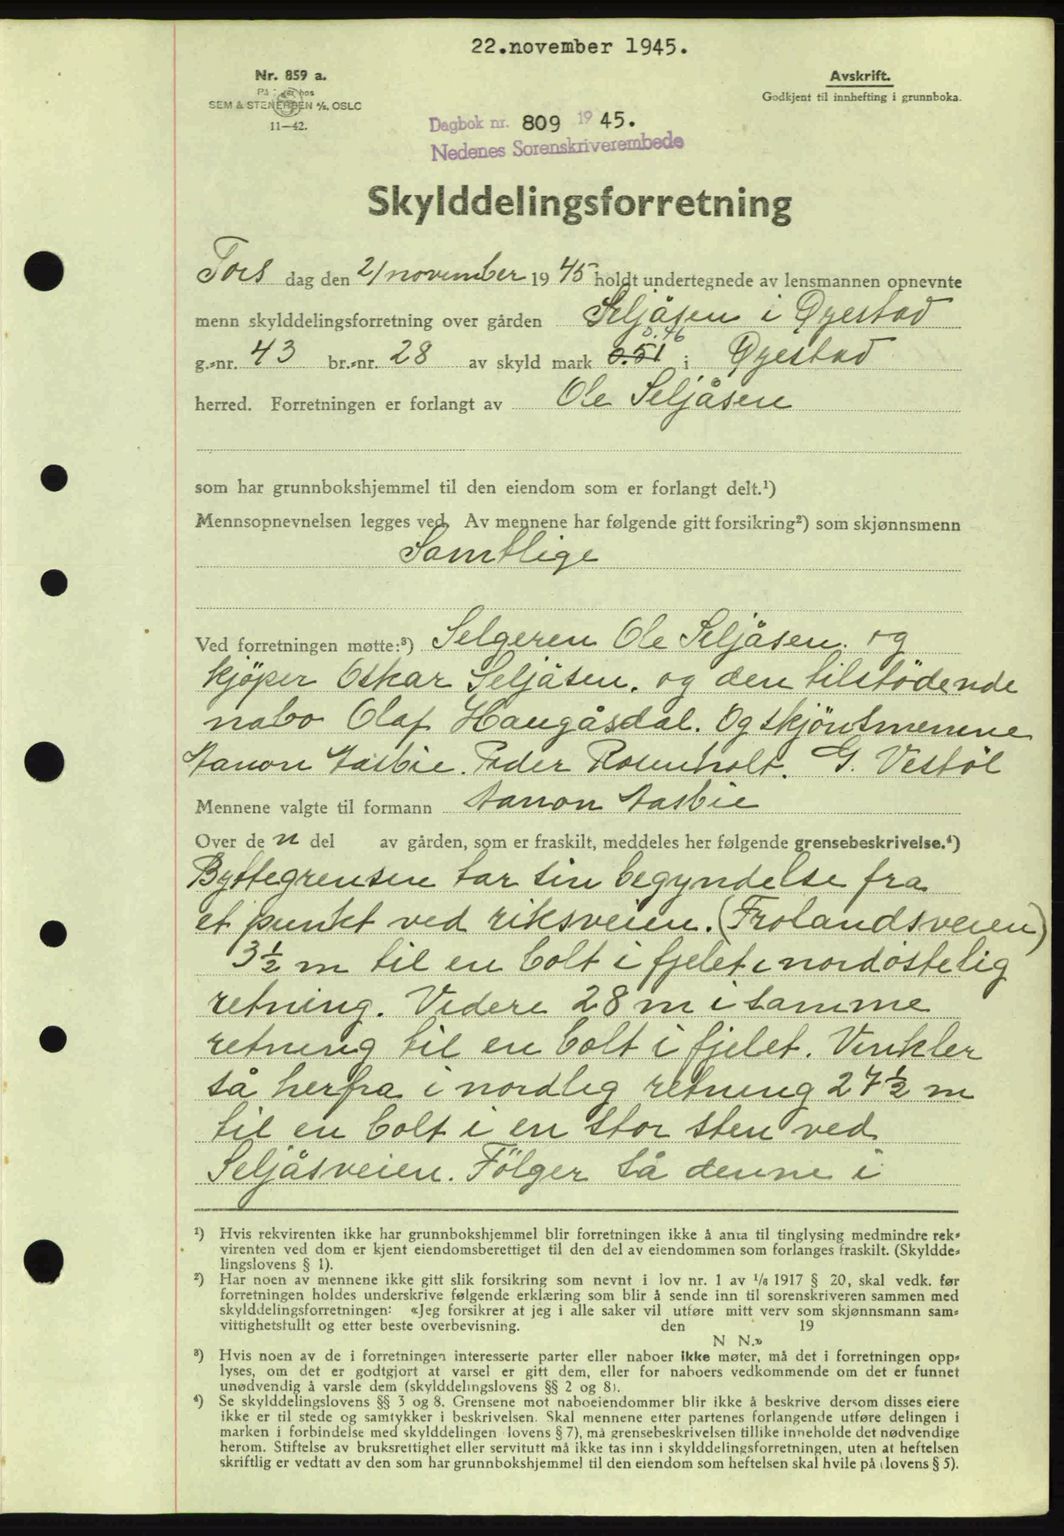 22.november 1945.
Nr. 859 a.
Avskrift.
Godkjent til innhefting i grunnboka.
SEM & STENERSEN A/S, OSLO
11—42.
Dagbok nr. 809 1945.
Nedenes Sorenskriverembede
Skylddelingsforretning
Tors dag den 21 november 1945 holdt undertegnede av lensmannen opnevnte
menn skylddelingsforretning over gården Seljåsen i Øyestad
0.46
g.-nr. 43 br.-nr. 28 av skyld mark 0.51 i Øyestad
herred. Forretningen er forlangt av Ole Seljåsen
som har grunnbokshjemmel til den eiendom som er forlangt delt.¹)
Mennsopnevnelsen legges ved. Av mennene har følgende gitt forsikring²) som skjønnsmenn
Samtlige
Ved forretningen møtte:³) Selgeren Ole Seljåsen. og
kjöper Oskar Seljåsen. og den tilstödende
nabo Olaf Haugåsdal. Og skjöntsmennene
Aanon Aasbie. Peder Rosenholt. G. Vestöl
Mennene valgte til formann Aanon Aasbie
Over den del av gården, som er fraskilt, meddeles her følgende grensebeskrivelse.⁴)
Byttegrensen tar sin begyndelse fra
et punkt ved riksveien. (Frolandsveien)
3½ m til en bolt i fjelet i nordöstelig
retning. Videre 28 m i samme
retning til en bolt i fjelet. Vinkler
så herfra i nordlig retning 27½ m
til en bolt i en stor sten ved
Seljåsveien. Fölger så denne i
¹) Hvis rekvirenten ikke har grunnbokshjemmel blir forretningen ikke å anta til tinglysing medmindre rek-
virenten ved dom er kjent eiendomsberettiget til den del av eiendommen som forlanges fraskilt. (Skyldde-
lingslovens § 1).
²) Har noen av mennene ikke gitt slik forsikring som nevnt i lov nr. 1 av 1/6 1917 § 20, skal vedk. før
forretningen holdes underskrive følgende erklæring som blir å sende inn til sorenskriveren sammen med
skylddelingsforretningen: «Jeg forsikrer at jeg i alle saker vil utføre mitt verv som skjønnsmann sam-
vittighetsfullt og etter beste overbevisning. den 19
N N.»
³) Hvis noen av de i forretningen interesserte parter eller naboer ikke møter, må det i forretningen opp-
lyses, om det er godtgjort at varsel er gitt dem, eller for naboers vedkommende om det er funnet
unødvendig å varsle dem (skylddelingslovens §§ 2 og 8).
⁴) Se skylddelingslovens §§ 3 og 8. Grensene mot naboeiendommer blir ikke å beskrive dersom disses eiere
ikke er til stede og samtykker i beskrivelsen. Skal mennene etter partenes forlangende utføre delingen i
marken i forbindelse med skylddelingen (lovens § 7), må grensebeskrivelsen tillike inneholde det nødvendige
herom. Stiftelse av bruksrettighet eller servitutt må ikke tas inn i skylddelingsforretningen, uten at heftelsen
skriftlig er vedtatt av den som har grunnbokshjemmel til den eiendom som heftelsen skal hvile på (lovens § 5).